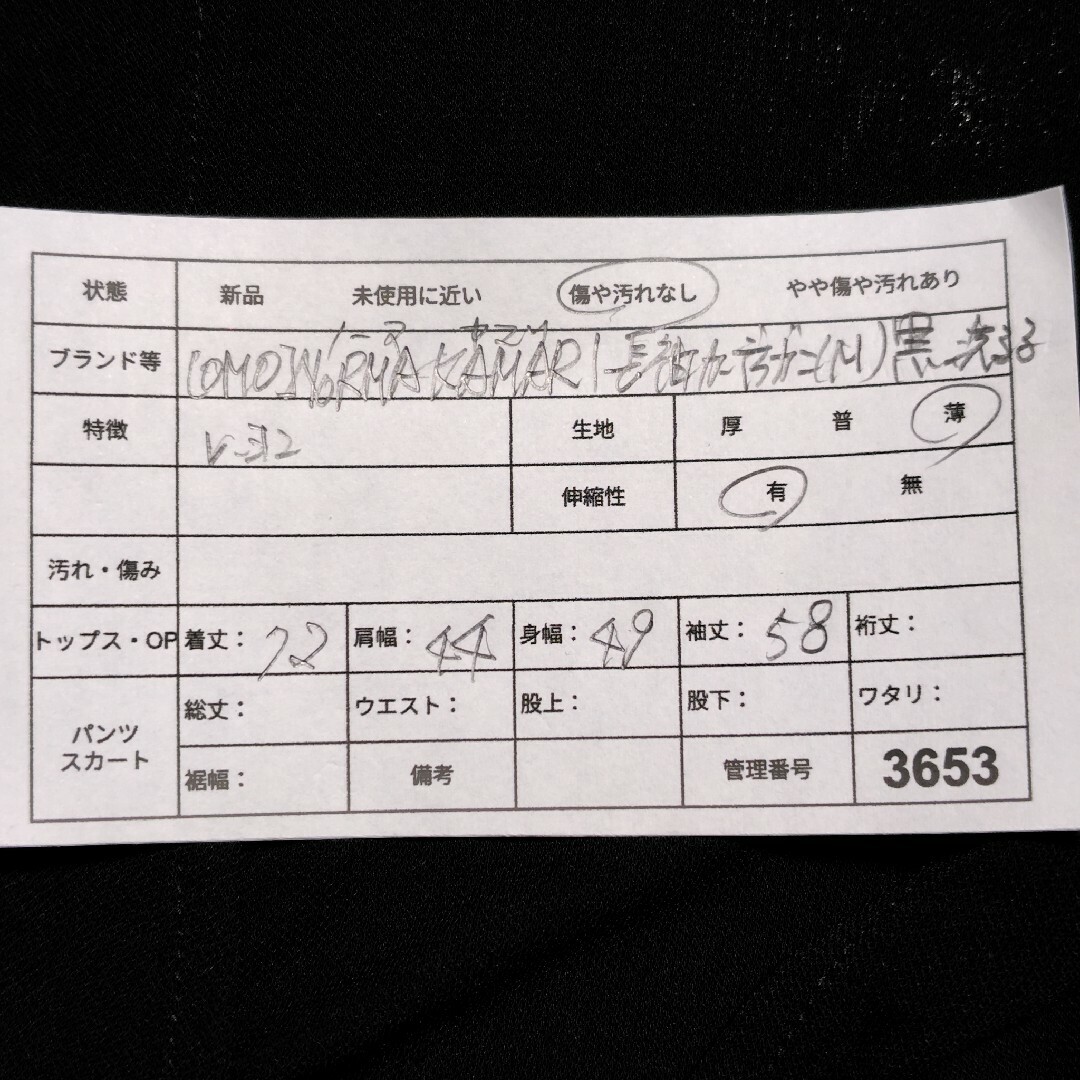 状態 新品 未使用に近い 傷や汚れなし やや傷や汚れあり
ノーマ カマリ
ブランド等 [OMO]NoRMA KAMARI 長袖カーディガン(M) 黒 洗える
特徴 レーヨン 生地 厚 普 薄
伸縮性 有 無
汚れ・傷み
トップス・OP 着丈: 72 肩幅: 44 身幅: 49 袖丈: 58 裄丈:
パンツ スカート 総丈: ウエスト: 股上: 股下: ワタリ:
裾幅: 備考 管理番号 3653